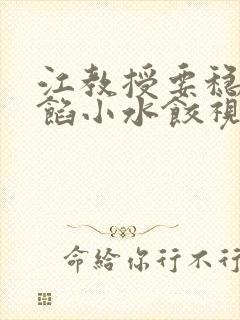 江教授要稳
餡小水餃視
命給你行不行